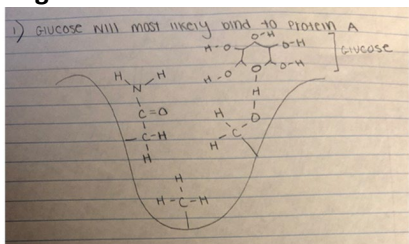 1) Glucose will most likely bind to Protein A
O-H
H-O O-H
H-O O O-H
Glucose
H H H
N O
C=O H
C-H H-C
H
H
H-C-H